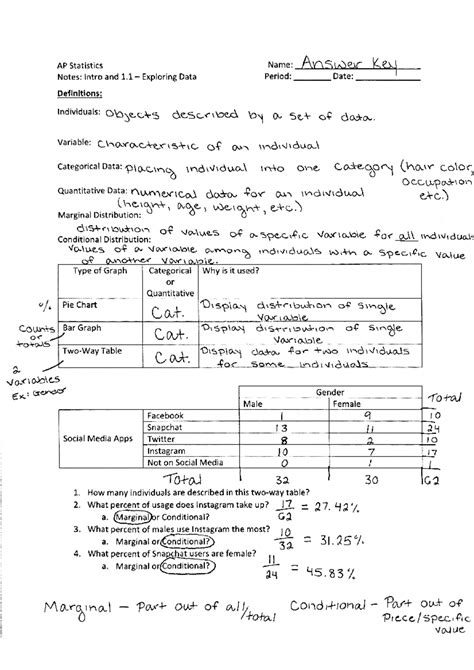 AP Statistics
Name: Answer Key
Notes: Intro and 1.1 – Exploring Data
Period: ______ Date: ______
Definitions:
Individuals: Objects described by a set of data.
Variable: Characteristic of an individual
Categorical Data: placing individual into one category (hair color, occupation etc.)
Quantitative Data: numerical data for an individual
(height, age, weight, etc.)
Marginal Distribution:
distribution of values of a specific variable for all individuals
Conditional Distribution:
values of a variable among individuals with a specific value
of another variable.
Type of Graph | Categorical or Quantitative | Why is it used?
% Pie Chart | Cat. | Display distribution of single variable
Counts or totals Bar Graph | Cat. | Display distribution of single variable
Two-Way Table | Cat. | Display data for two individuals for some individuals
2 variables
Ex: Gender
Gender
Male | Female | Total
Social Media Apps
Facebook | 1 | 9 | 10
Snapchat | 13 | 11 | 24
Twitter | 8 | 2 | 10
Instagram | 10 | 7 | 17
Not on Social Media | 0 | 1 | 1
Total | 32 | 30 | 62
1. How many individuals are described in this two-way table?
2. What percent of usage does Instagram take up? 17/62 = 27.42%
a. Marginal or Conditional?
3. What percent of males use Instagram the most? 10/32 = 31.25%
a. Marginal or Conditional?
4. What percent of Snapchat users are female? 11/24 = 45.83%
a. Marginal or Conditional?
Marginal – Part out of all/total
Conditional – Part out of Piece/specific value